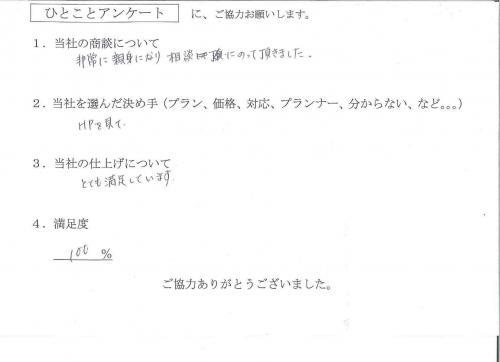 ひとことアンケート に、ご協力お願いします。
1．当社の商談について
非常に親身になり相談にのって頂きました。
2．当社を選んだ決め手（プラン、価格、対応、プランナー、分からない、など。。。）
HPを見て。
3．当社の仕上げについて
とても満足しています。
4．満足度
100 %
ご協力ありがとうございました。